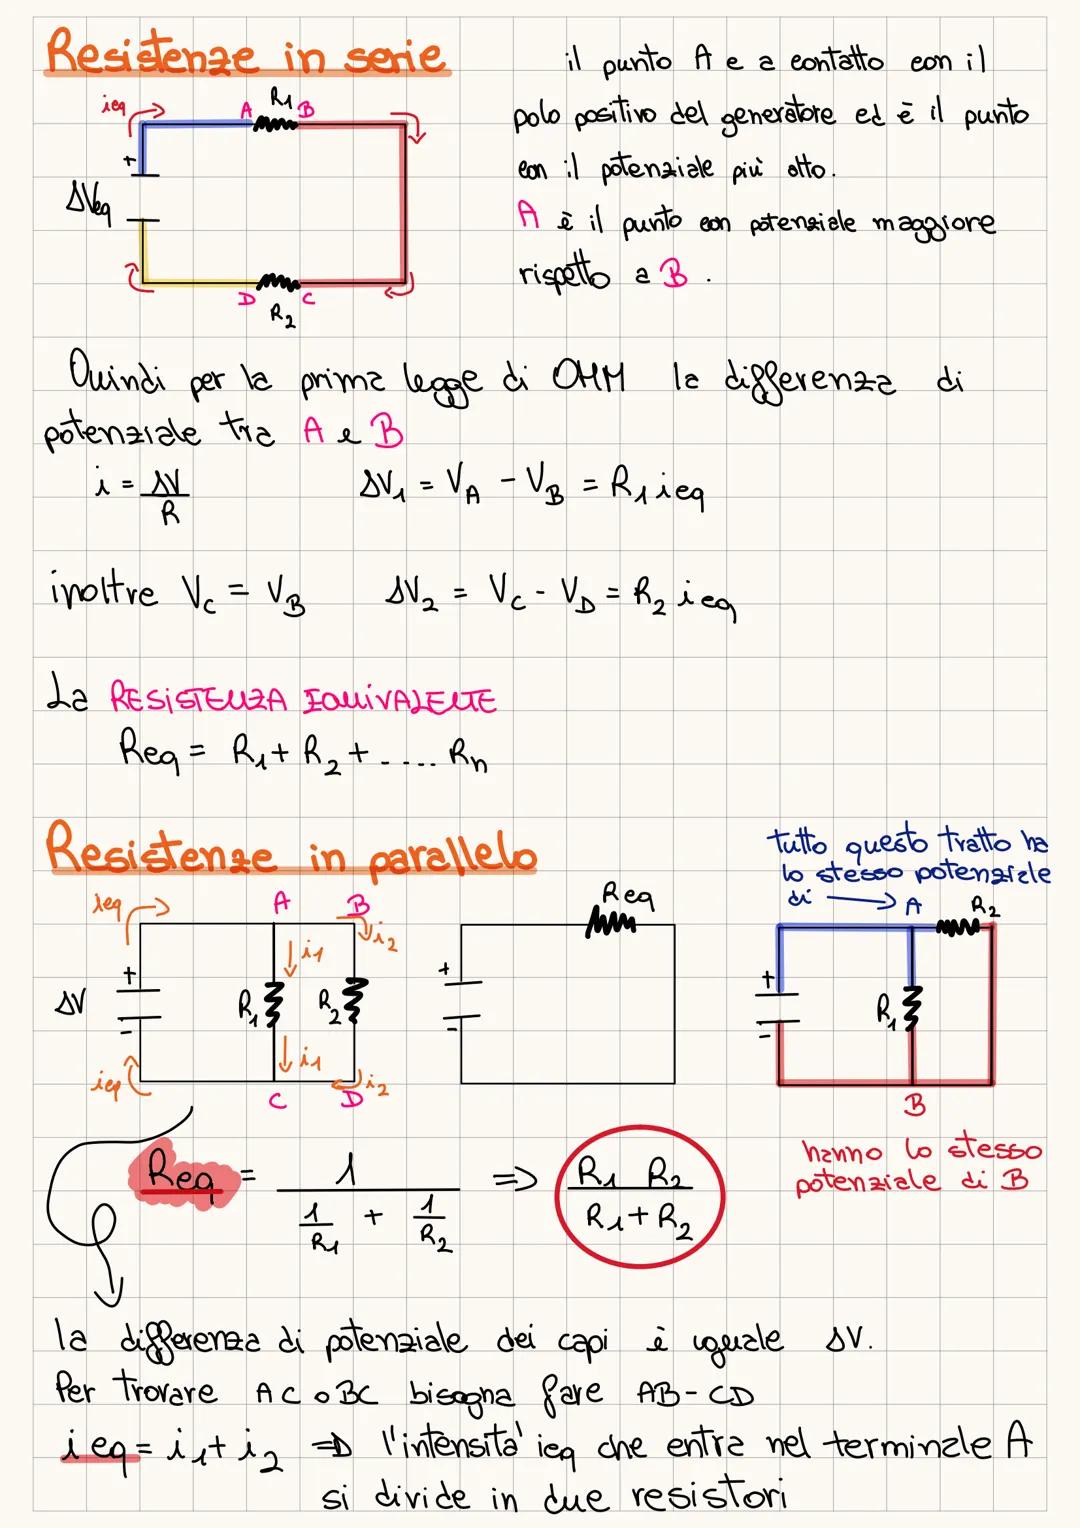 Resistenze in serie
il punto A e a contatto con il
polo positivo del generatore ed è il punto
con il potenziale più alto.
A è il punto con potenziale maggiore
rispetto a B.
ieq
A R1 B
+
ΔVeq
D C
R2
Quindi per la prima legge di OHM la differenza di
potenziale tra A e B
i = ΔV/R ΔV1 = VA - VB = R1 ieq
inoltre VC = VB ΔV2 = VC - VD = R2 ieq
La RESISTENZA EQUIVALENTE
Req = R1 + R2 + .... Rn
Resistenze in parallelo
tutto questo tratto ha
lo stesso potenziale
di → A R2
ieq A B
i1 i2
+
ΔV R1 R2
-
ieq i1 i2
C D
Req
+
-
+
R1
-
B
hanno lo stesso
potenziale di B
Req = 1/(1/R1 + 1/R2) => R1 R2/(R1 + R2)
la differenza di potenziale dei capi è uguale ΔV.
Per trovare AC o BC bisogna fare AB-CD
ieq = i1 + i2 => l'intensita' ieq che entra nel terminale A
si divide in due resistori